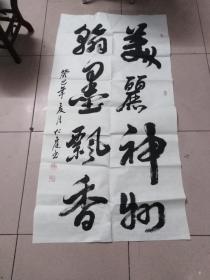 美麗神州
翰墨飄香
癸巳年夏月